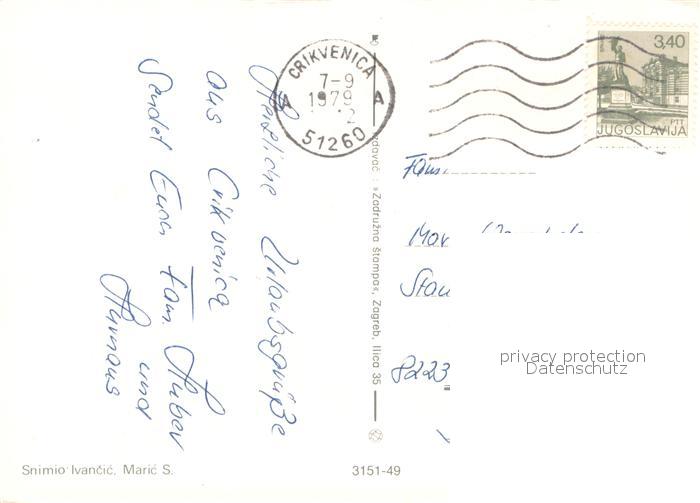 Herzliche Urlaubsgrüße
aus Crikvenica
Sendet Euch Fam. Huber
und
CRIKVENICA
7-9
1979
A A
2
51260
3,40
PTT
JUGOSLAVIJA
Izdavač: »Zadružna štampa«, Zagreb, Ilica 35
Fam.
8223
privacy protection
Datenschutz
Snimio Ivančić, Marić S.
3151-49